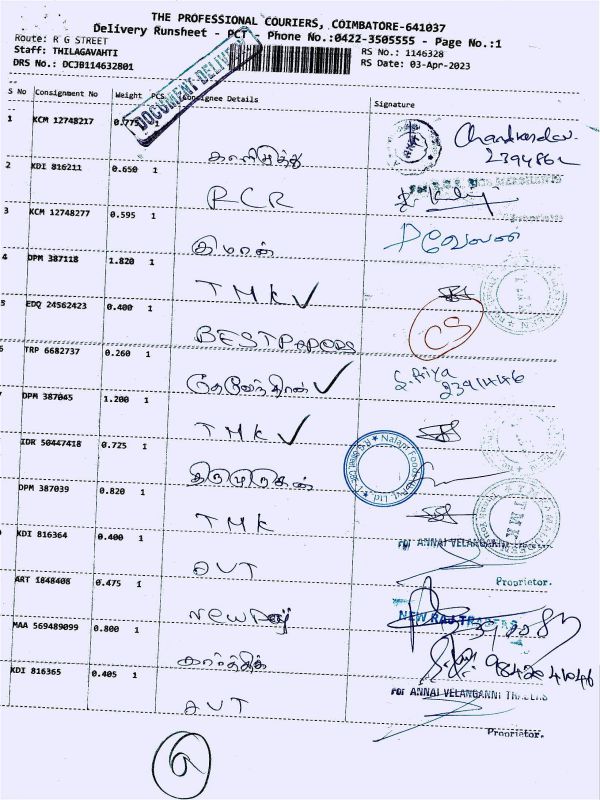 THE PROFESSIONAL COURIERS, COIMBATORE-641037
Delivery Runsheet - PCT Phone No.:0422-3505555 - Page No.:1
Route: R G STREET
Staff: THILAGAVAHTI
DRS No.: DCJB114632801
RS No.: 1146328
RS Date: 03-Apr-2023
S No Consignment No Weight PCS Consignee Details Signature
DOCUMENT DELIVERY
1 KCM 12748217 0.775 1
காளிமுத்து
2 KDI 816211 0.650 1
RCR
3 KCM 12748277 0.595 1
வேலன்
4 DPM 387118 1.820 1
TMK
5 EDQ 24562423 0.400 1
BEST
CS
6 TRP 6682737 0.260 1
S. Priya
DPM 387045 1.200 1
TMK
IDR 50447418 0.725 1
திருமுருகன்
DPM 387039 0.820 1
TMK
TMK
KDI 816364 0.400 1
For ANNAI VELANGANNI
AVT
Proprietor.
ART 1848408 0.475 1
NEW RAJ TRADERS
New Raj
MAA 569489099 0.800 1
கார்த்திக்
KDI 816365 0.405 1
For ANNAI VELANGANNI TRADERS
AVT
Proprietor.
6